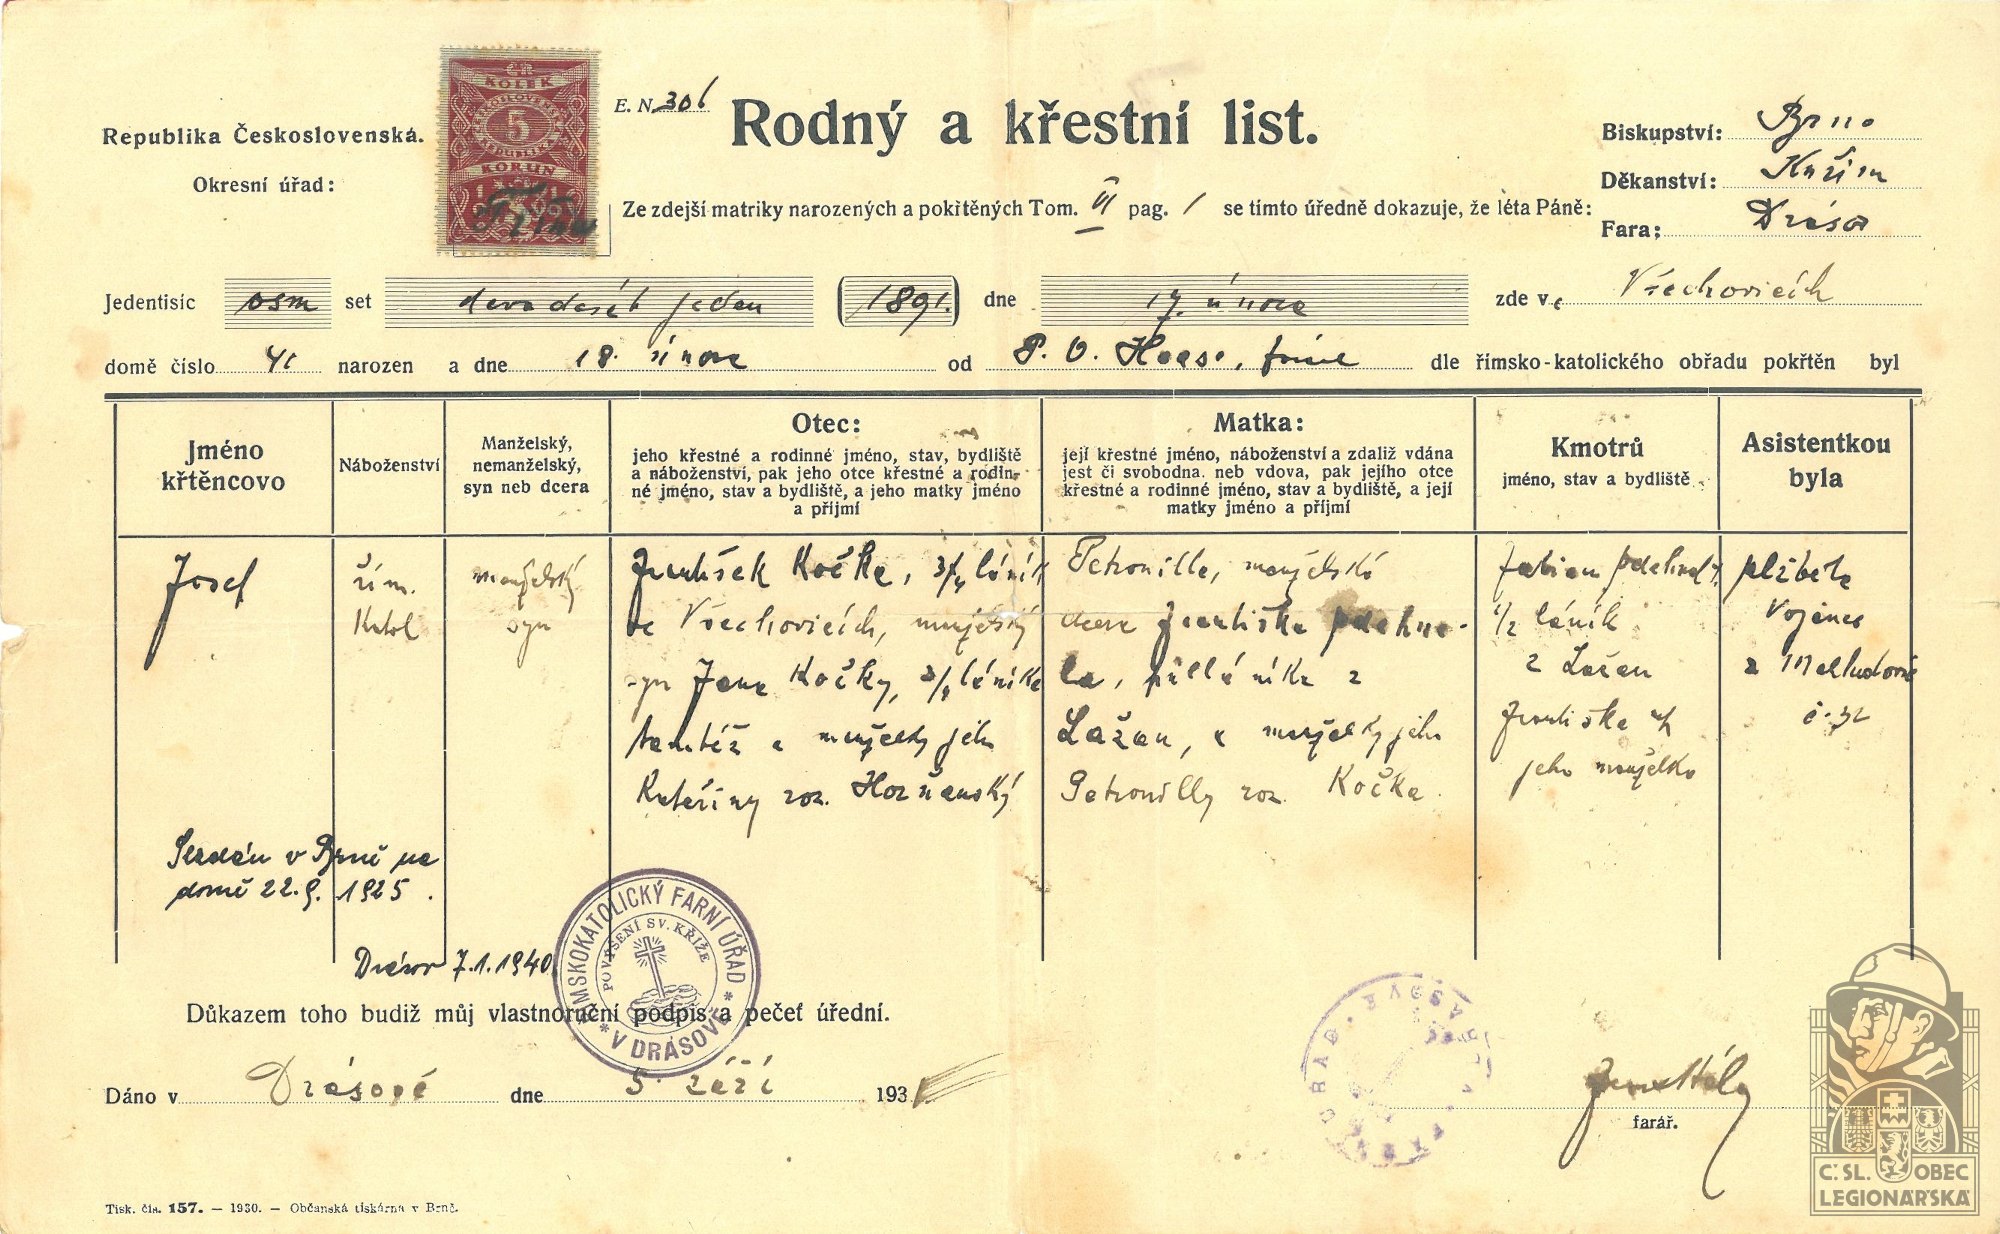 KOLEK
5
KORUN
E. N. 306
Rodný a křestní list.
Republika Československá.
Okresní úřad:
Biskupství: Brno
Děkanství: Kuřim
Fara: Drásov
Ze zdejší matriky narozených a pokřtěných Tom. VI pag. 1 se tímto úředně dokazuje, že léta Páně:
Jedentisíc osm set devadesát jeden (1891.) dne 17. února zde ve Všechovicích
domě číslo 41 narozen a dne 18. února od P. O. dle římsko-katolického obřadu pokřtěn byl
Jméno
křtěncovo
Náboženství
Manželský,
nemanželský,
syn neb dcera
Otec:
jeho křestné a rodinné jméno, stav, bydliště
a náboženství, pak jeho otce křestné a rodin-
né jméno, stav a bydliště, a jeho matky jméno
a příjmí
Matka:
její křestné jméno, náboženství a zdaliž vdána
jest či svobodna. neb vdova, pak jejího otce
křestné a rodinné jméno, stav a bydliště, a její
matky jméno a příjmí
Kmotrů
jméno, stav a bydliště
Asistentkou
byla
Josef
řím.
katol
manželský
syn
František Kočka, 3/4 láník
ve Všechovicích, manželský
syn Jana Kočky, 3/4 láníka
tamtéž a manželky jeho
Kateřiny roz.
Petronilla, manželská
dcera Františka
la, půlláníka z
Lažan, a manželky jeho
Petronilly roz. Kočka.
Fabian
1/2 láník
z Lažan
Františka
jeho manželka
Alžběta
z
č. 32
v Brně na
domě 22. 9. 1925.
Drásov 7.1.1940
ŘÍMSKOKATOLICKÝ FARNÍ ÚŘAD
* V DRÁSOVĚ *
POVÝŠENÍ SV. KŘÍŽE
Důkazem toho budiž můj vlastnoruční podpis a pečeť úřední.
Dáno v Drásově dne 5. září 193
farář.
Tisk. čís. 157. — 1930. — Občanská tiskárna v Brně.
Č. SL. OBEC
LEGIONÁŘSKÁ